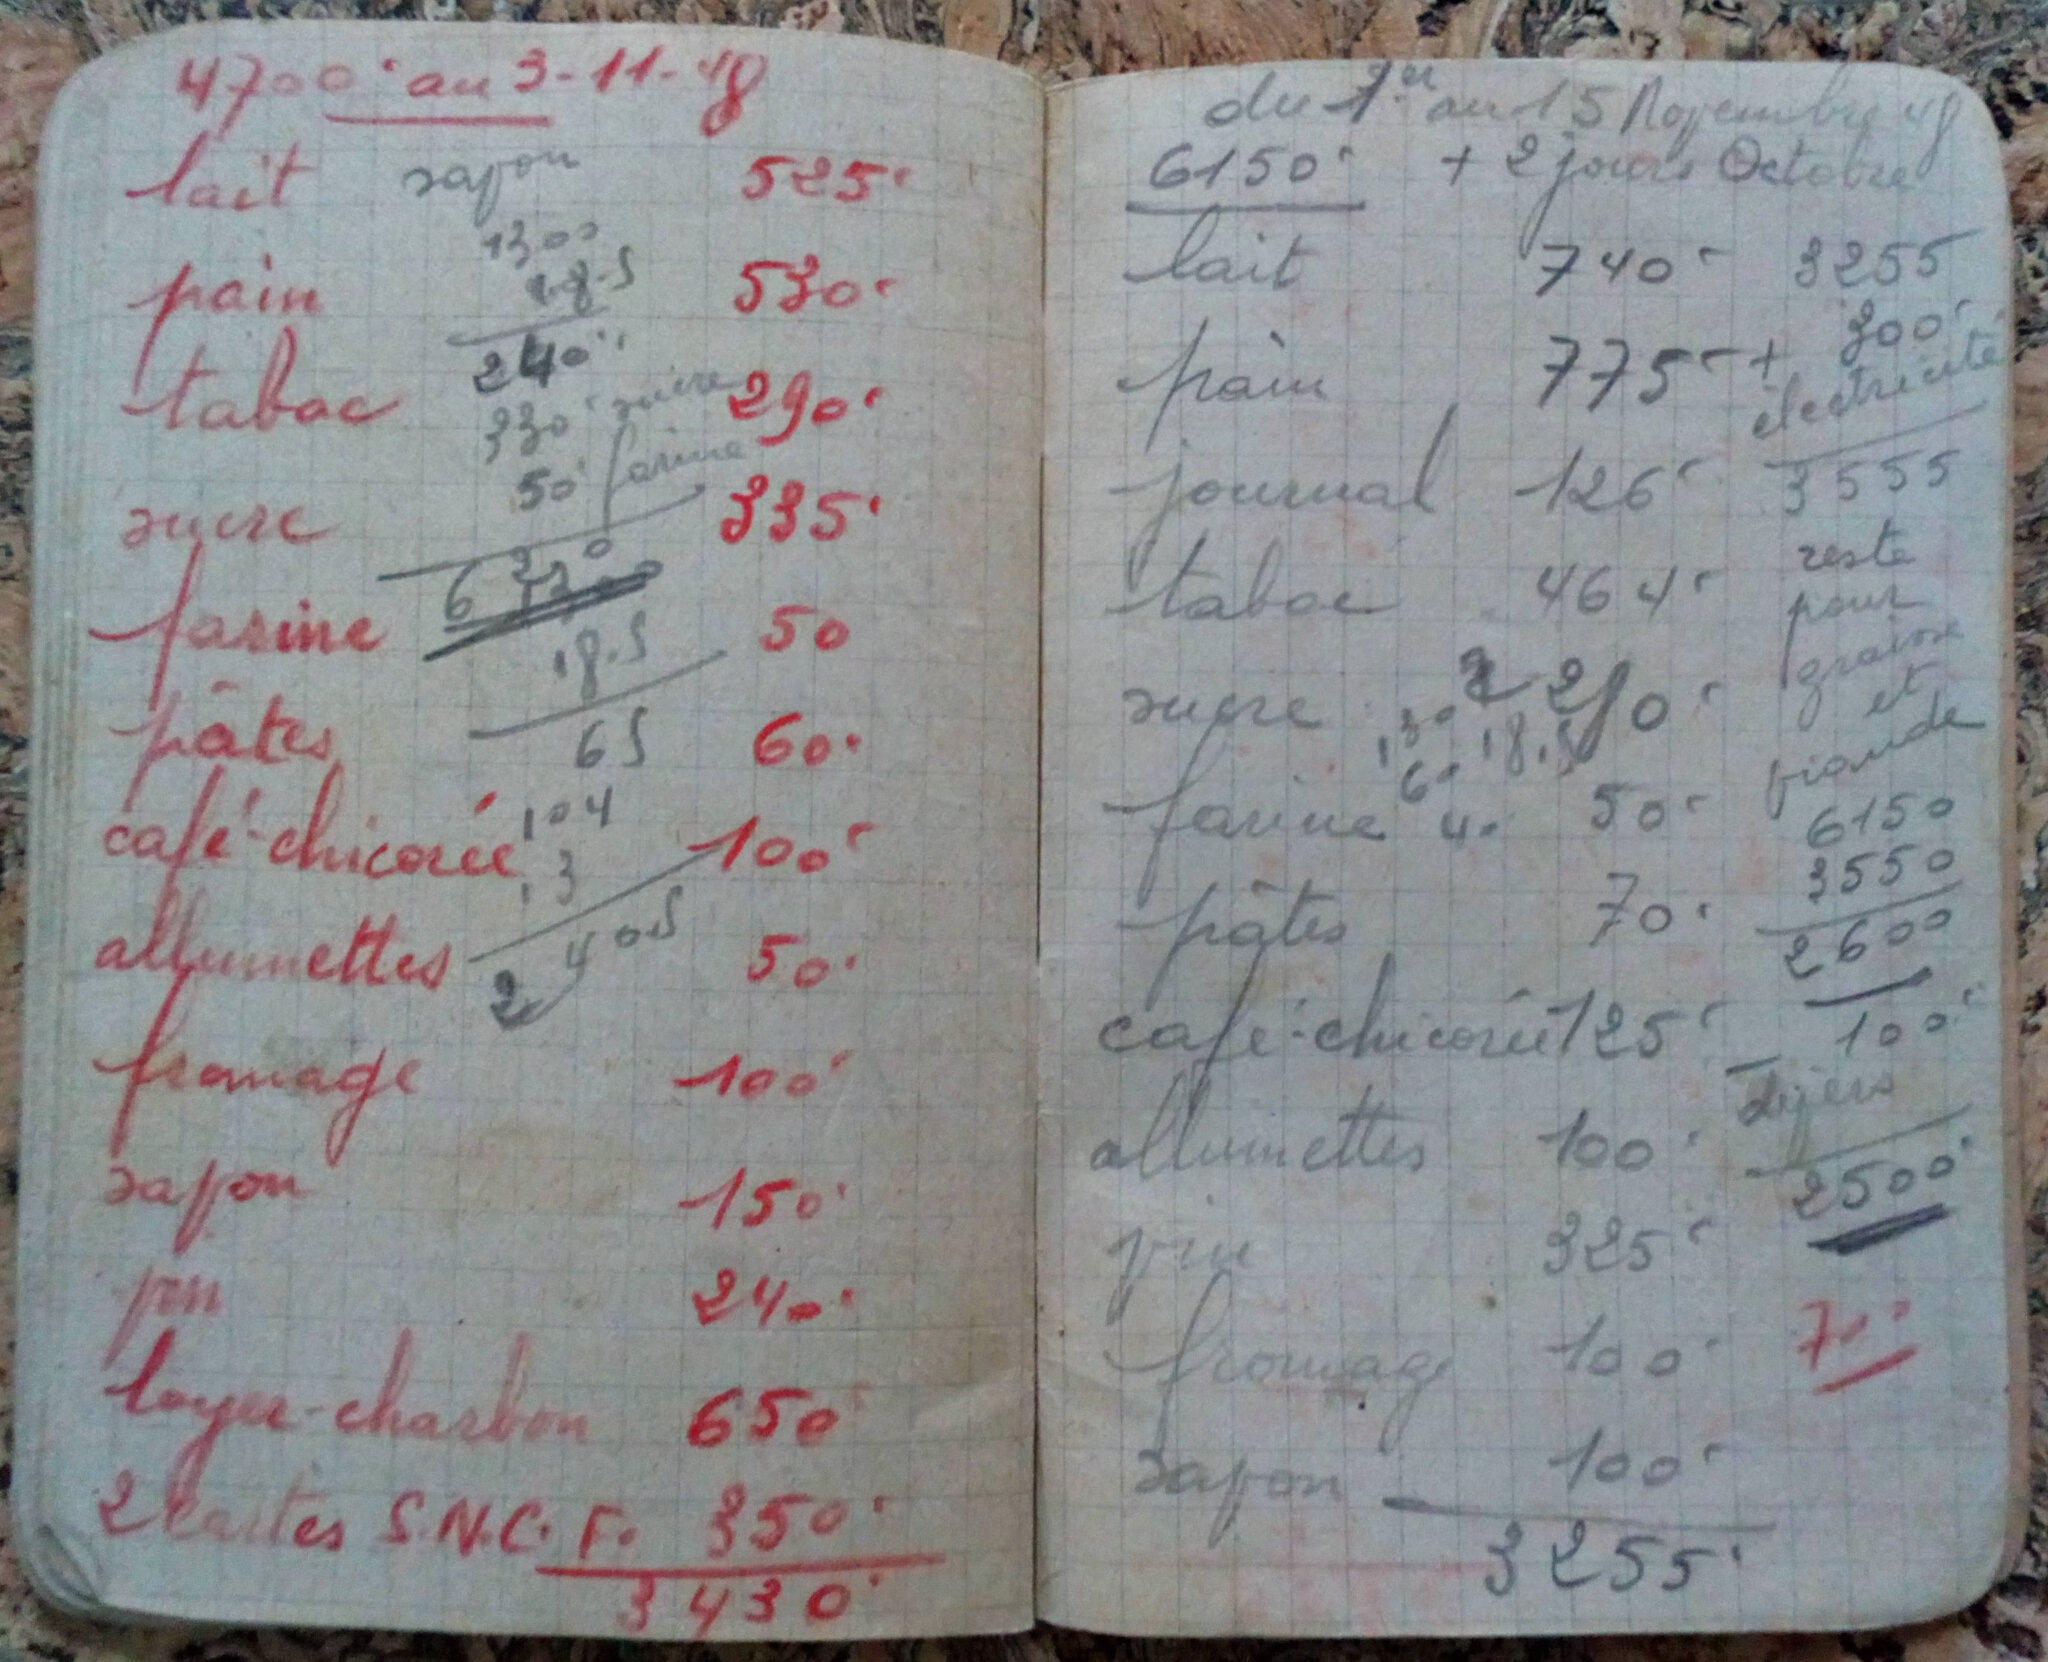 4700' au 3-11-48
lait savon 525'
1300
18.5
pain 530'
240'
tabac 290'
330' sucre
50' farine
sucre 335'
farine 50
18.5
pâtes 60'
65
104
café-chicorée 100'
13
allumettes 50'
2 405
fromage 100'
savon 150'
vin 240'
loyer-charbon 650'
2 cartes S.N.C.F. 350'
3430'
du 1er au 15 Novembre 48
6150' + 2 jours Octobre
lait 740' 3255
pain 775' + 300'
électricité
journal 126' 3555
tabac 464' reste
pour
graisse
et
viande
sucre 280'
130 18.5
60
farine 40 50' 6150
3550
pâtes 70' 2600
café-chicorée 125' 100'
divers
allumettes 100' 2500'
vin 325'
fromage 100' 700
savon 100'
3255'